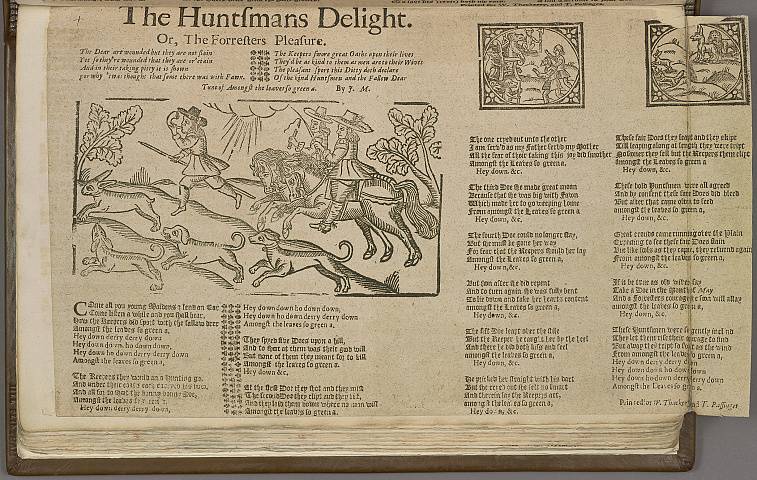 The Huntsmans Delight.
Or, The Forresters Pleasure.
The Dear art wounded but they are not slain
Yet so they're wounded that they are or'etain
And in their taking pitty it is shown
per why 'twas thought that some there was with Fawn.
The Keepers swore great Oaths upon their lives
They'd be as kind to them as men are to their Wives
The pleasant sport this Ditty doth declare
Of the kind Huntsmen and the Fallow Dear
Tune of Amongst the leaves so green a. By J. M.
COme all you young Maidens a lend an Ear
Come listen a while and you shall hear,
How the Keepers did sport with the fallow deer
Amongst the leaves so green a,
Hey down derry derry down
Hey down down, ho down down,
Hey down ho down derry derry down
Amongst the leaves so green a,
The Keepers they would an a Hunting go,
And under their
And all for to
Amongst the leaves
Hey down derry derry down,
Hey down down ho down down,
Hey down ho down derry derry down
Amongst the leaves so green a,
They spyed five Does upon a hill,
And to shoot at them was their good will
But none of them they meant for to kill
Amongst the leaves so green a.
Hey down &c.
At the first Doe they shot and they mist
The second Doe they clipt and they kist,
And they laid them down where no man wist
Amongst the leaves so green a,
The one cryed out unto the other
I am serv'd as my Father serv'd my Mother
All the fear of their taking this joy did smother
Amongst the Leaves so green a.
Hey down, &c.
The third Doe she made great moan
Because that she was big with Fawn
Which made her to go weeping home
From amongst the Leaves so green a,
Hey down, &c.
The fourth Doe could no longer stay,
But she must be gone her way
For fear that the Keepers should her lay
Amongst the Leaves so green a,
Hey down,&c.
But soon after she did repent
And to turn again she was fully bent
To lie down and take her hearts content
amongst the leaves so green a,
Hey down, &c.
The fift Doe leapt over the stile
But the Keeper he caught her by the heel
And there he did both kiss and feel
amongst the leaves so green a,
Hey down, &c.
He pricked her straight with his dart
But she cryed out she felt no smart
And therein lay the Keepers art,
amongst the leaves so green a,
Hey down, &c.
These fair Does they leapt and they skipt
Till leaping along at length they were tript
No sooner they fell but the Keepers them clipt
Amongst the Leaves so green a
Hey down, &c.
These bold Huntsmen were all agreed
And by consent these fair Does did bleed
But after that came often to feed
amongst the leaves so green a,
Hey down, &c.
Great crouds came running over the Plain
to see these fair Does slain
But like fools as they came, they returned again
From amongst the leaves so green a,
Hey down, &c.
If it be true as old wifes say
Take a Doe in the Month of May
And a Forresters courage she soon will allay
amongst the leaves so green a,
Hey down, &c.
These Huntsmen were so gently inclin'd
They let them rise their courage to find
But away they tript so fast as the wind
From amongst the leaves so green a,
Hey down derry derry down
Hey down down ho down down
Hey down ho down derry derry down
Amongst the Leaves so green a,
Printed for W. Thackeray and T. Passinger